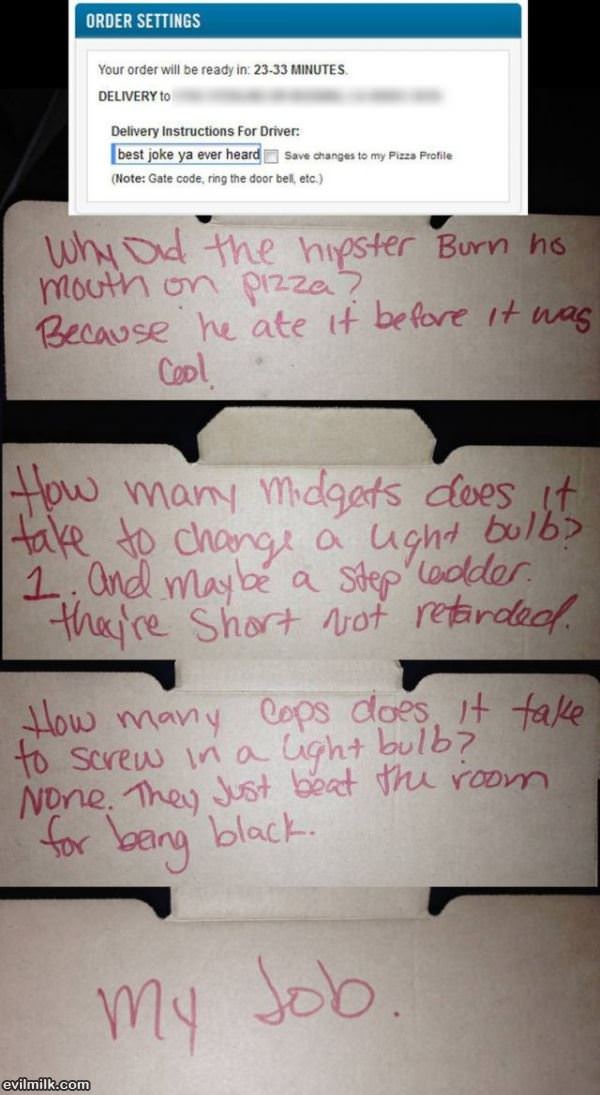 ORDER SETTINGS
Your order will be ready in: 23-33 MINUTES.
DELIVERY to
Delivery Instructions For Driver:
best joke ya ever heard Save changes to my Pizza Profile
(Note: Gate code, ring the door bell, etc.)
Why Did the hipster Burn his
mouth on pizza?
Because he ate it before it was
Cool.
How many Midgets does it
take to change a light bulb?
1. And maybe a step ladder.
they're Short Not retarded.
How many Cops does it take
to screw in a light bulb?
None. They Just beat the room
for being black.
My Job.
evilmilk.com